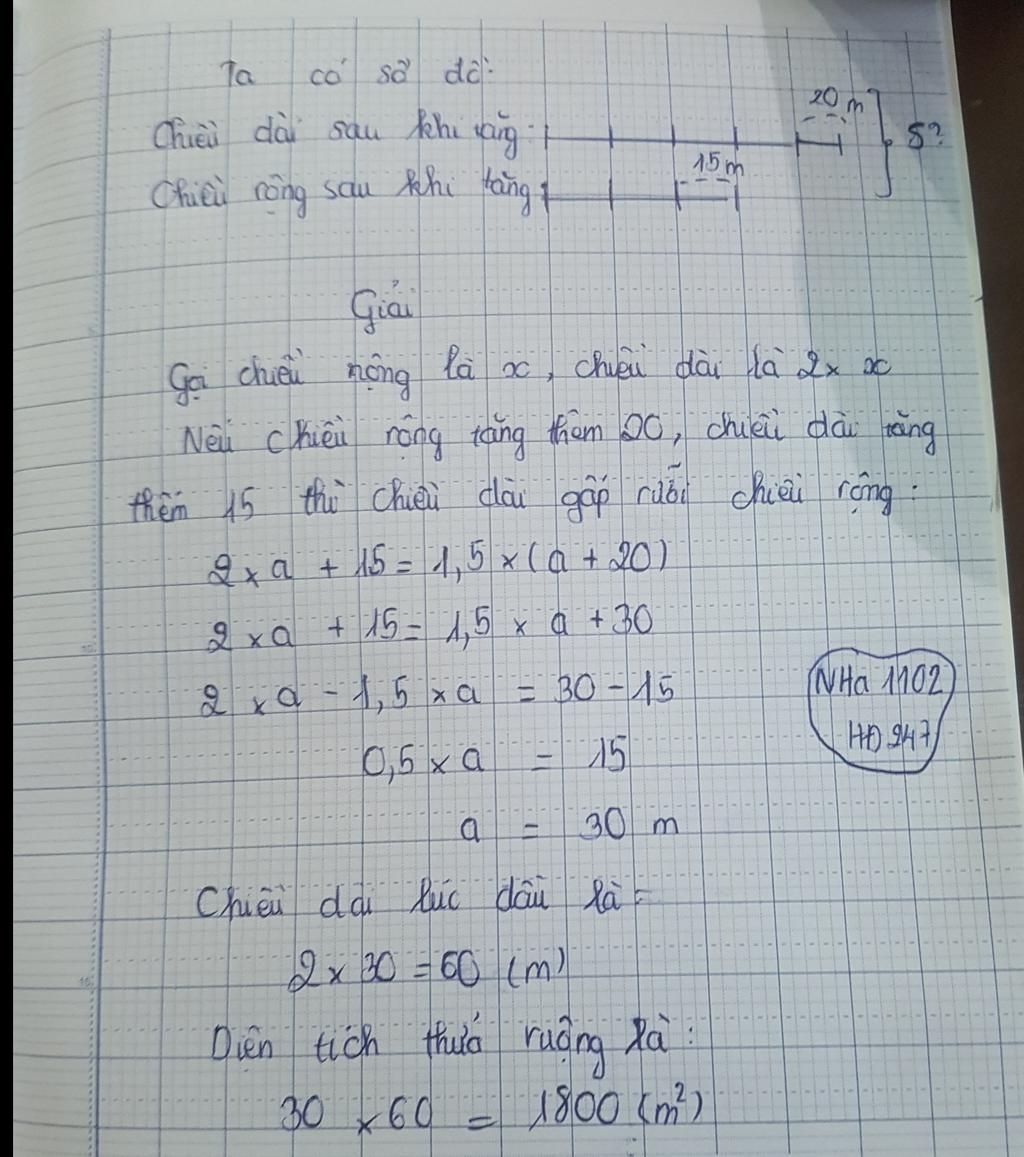 Ta có sơ đồ:
20 m
Chiều dài sau khi tăng: S?
15m
Chiều rộng sau khi tăng
Giải
Gọi chiều rộng là x, chiều dài là 2 x x
Nếu chiều rộng tăng thêm 20, chiều dài tăng
thêm 15 thì chiều dài gấp rưỡi chiều rộng:
2 x a + 15 = 1,5 x (a + 20)
2 x a + 15 = 1,5 x a + 30
2 x a - 1,5 x a = 30 - 15
0,5 x a = 15
a = 30 m
NHa 1102
HĐ 247
Chiều dài lúc đầu là =
2 x 30 = 60 (m)
Diện tích thửa ruộng là:
30 x 60 = 1800 (m²)